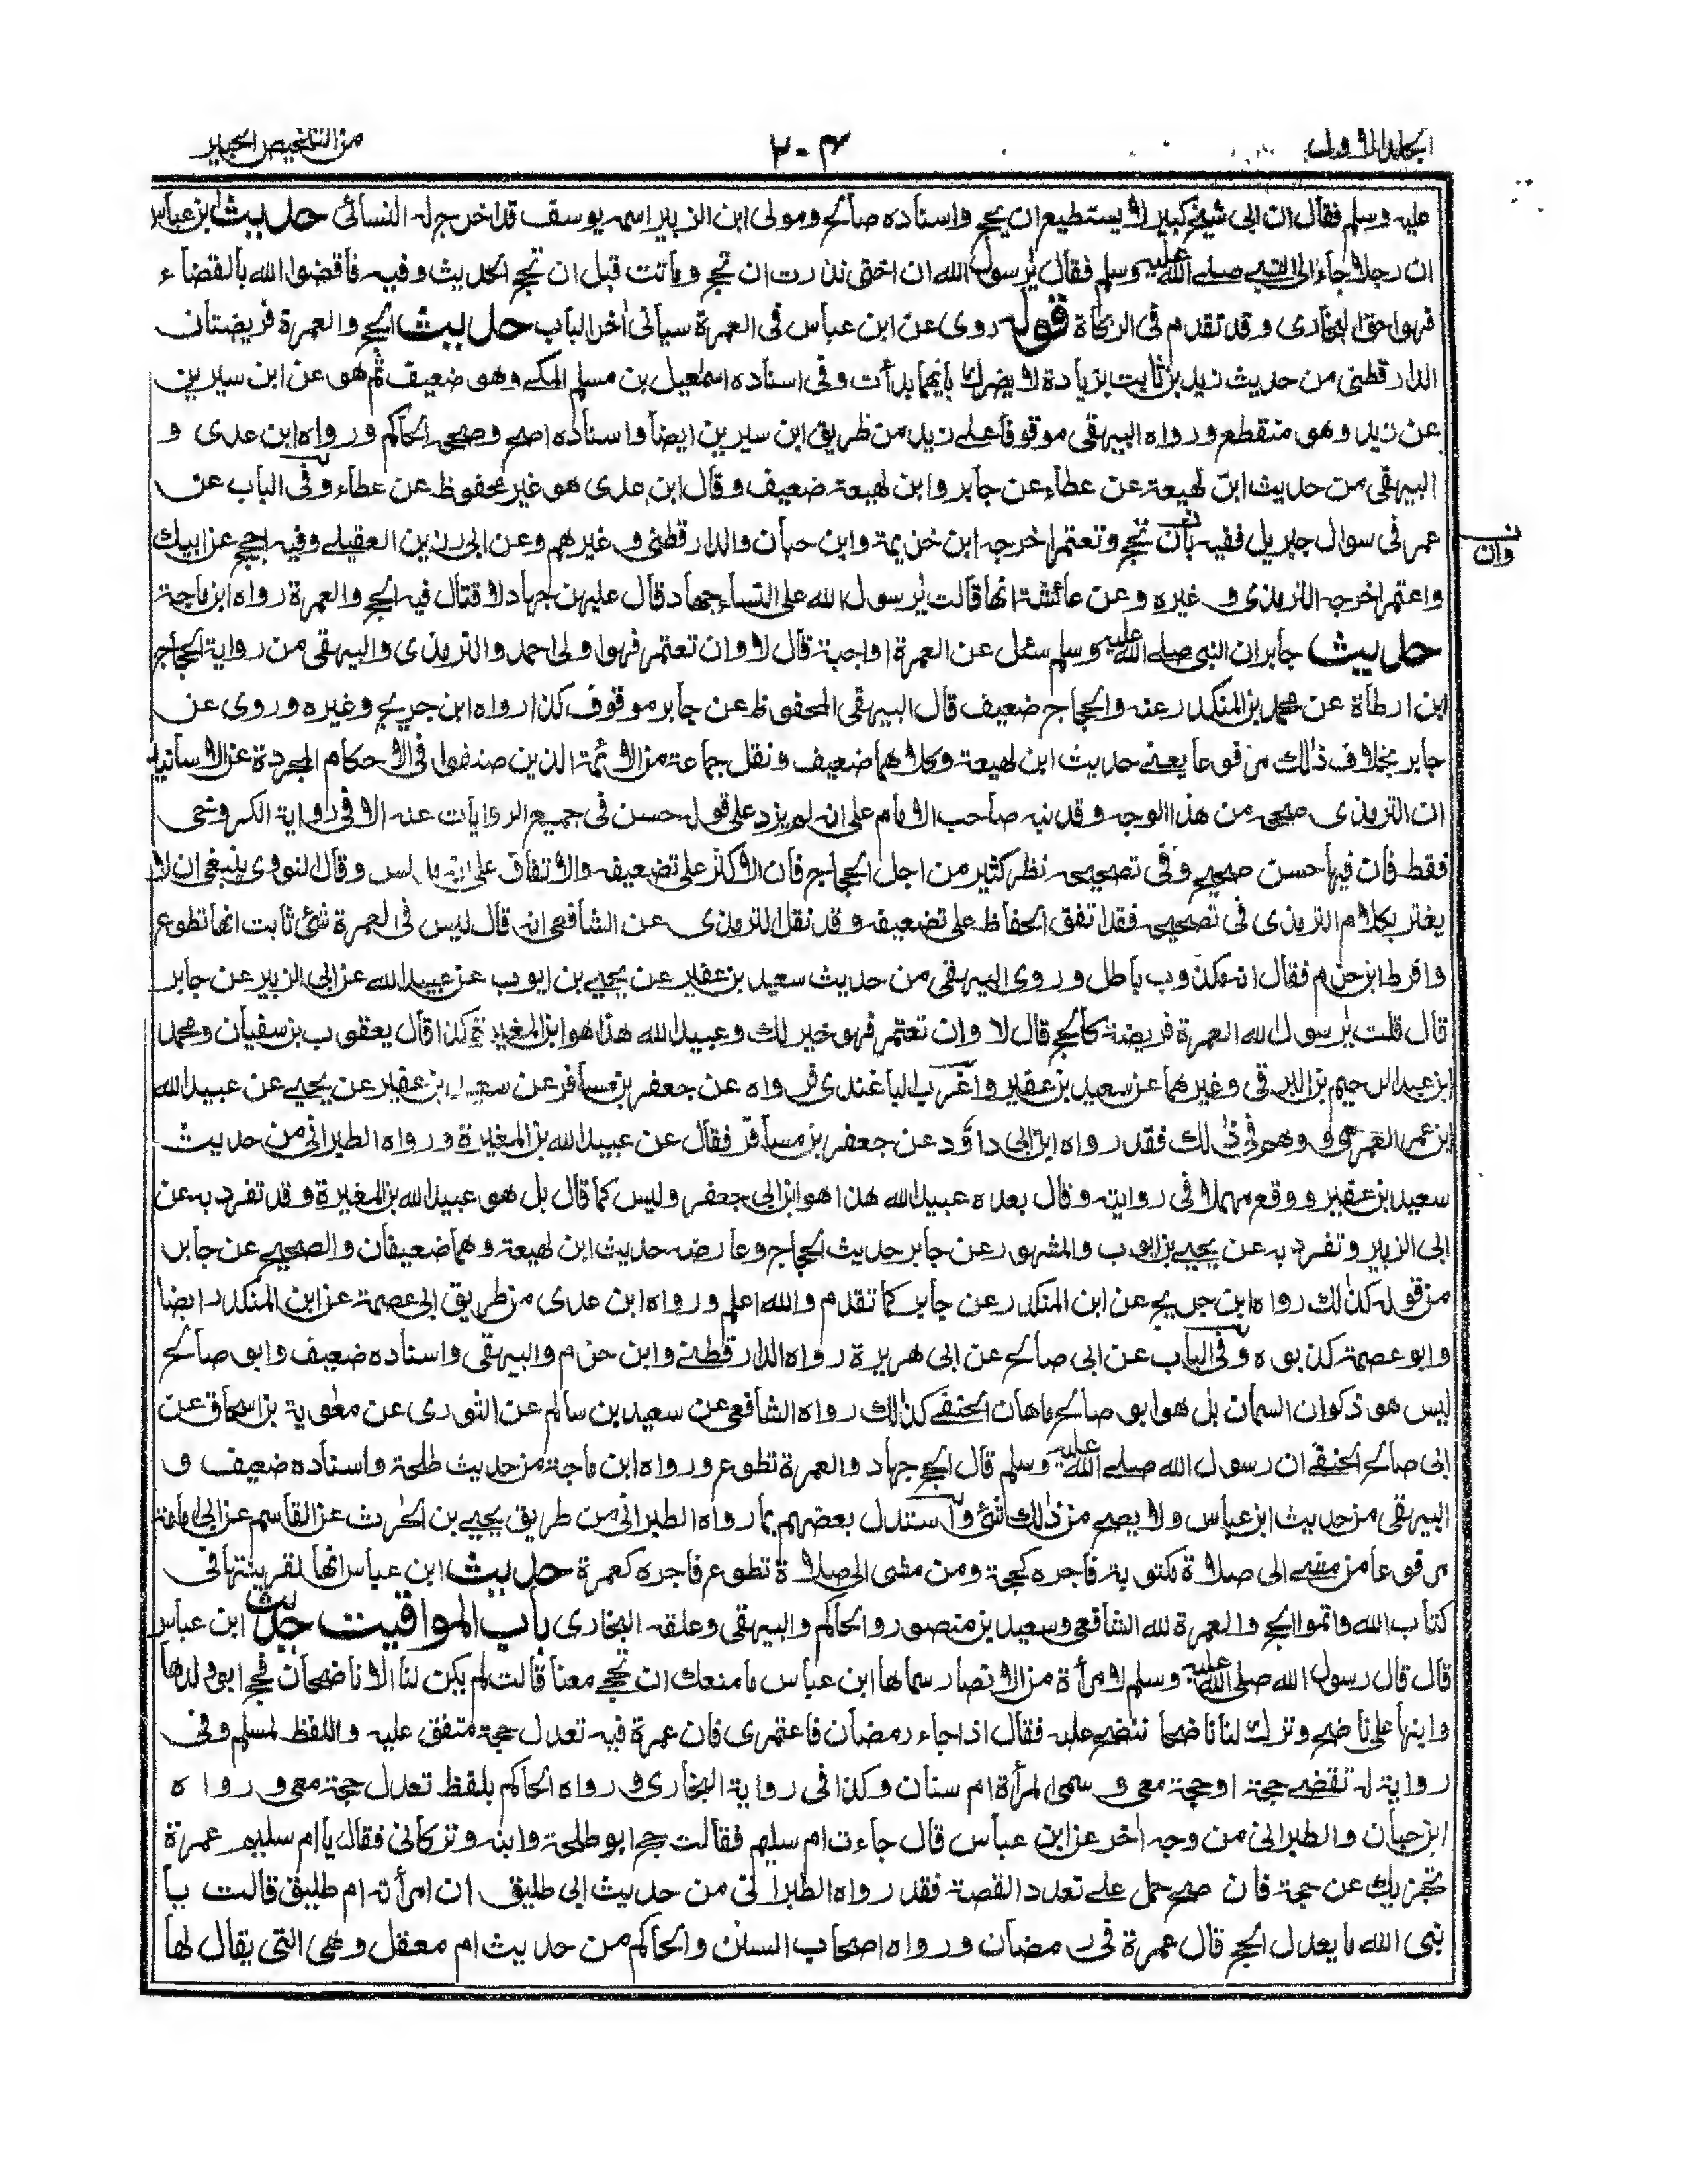 الجلد الاول ٢٠٤ من التلخيص الحبير
عليه وسلم فقال ان ابى شيخ كبير لا يستطيع ان يحج واسناده صالح ومولى ابن الزبير اسمه يوسف قد اخرج له النسائى حديث ابن عباس
ان رجلا جاء الى النبى صلى الله عليه وسلم فقال يٰرسول الله ان اختى نذرت ان تحج وماتت قبل ان تحج الحديث وفيه فاقضوا الله بالقضاء
فهوا حق البخارى وقد تقدم فى الزكاة قوله روى عن ابن عباس فى العمرة سيأتى اٰخر الباب حديث الحج والعمرة فريضتان
الدارقطنى من حديث زيد بن ثابت بزيادة لا يضرك بايهما بدأت وفى اسناده اسمٰعيل بن مسلم المكى وهو ضعيف ثم هو عن ابن سيرين
عن زيد وهو منقطع ورواه البيهقى موقوفا على زيد من طريق ابن سيرين ايضا واسناده اصح وصححه الحاكم ورواه ابن عدى و
البيهقى من حديث ابن لهيعة عن عطاء عن جابر وابن لهيعة ضعيف وقال ابن عدى هو غير محفوظ عن عطاء وفى الباب عن
عمر فى سوال جبريل ففيه بان تحج وتعتمر اخرجه ابن خزيمة وابن حبان والدارقطنى وغيرهم وعن ابى رزين العقيلى وفيه احجج عن ابيك
وان
واعتمر اخرجه الترمذى وغيره وعن عائشة انها قالت يٰرسول الله على النساء جهاد قال عليهن جهاد لا قتال فيه الحج والعمرة رواه ابن ماجة
حديث جابر ان النبى صلى الله عليه وسلم سئل عن العمرة اواجبة قال لا وان تعتمر فهوا ولى احمد والترمذى والبيهقى من رواية الحجاج
ابن ارطاة عن محمد بن المنكدر عنه والحجاج ضعيف قال البيهقى المحفوظ عن جابر موقوف كذا رواه ابن جريج وغيره وروى عن
جابر بخلاف ذٰلك مرفوعا يعنى حديث ابن لهيعة وكلاهما ضعيف ونقل جماعة من الائمة الذين صنفوا فى الاحكام المجردة عن الاسانيد
ان الترمذى صححه من هذا الوجه وقد نبه صاحب الامام على انه لم يزد على قوله حسن فى جميع الروايات عنه الا فى رواية الكروخى
فقط فان فيها حسن صحيح وفى تصحيحه نظر كثير من اجل الحجاج فان الاكثر على تضعيفه والاتفاق على انه مدلس وقال النووى ينبغى ان لا
يغتر بكلام الترمذى فى تصحيحه فقد اتفق الحفاظ على تضعيفه وقد نقل الترمذى عن الشافعى انه قال ليس فى لعمرة شئ ثابت انها تطوع
وافرط ابن حزم فقال انه مكذوب باطل وروى البيهقى من حديث سعيد بن عفير عن يحيى بن ايوب عن عبيد الله عن ابى الزبير عن جابر
قال قلت يٰرسول الله العمرة فريضة كالحج قال لا وان تعتمر فهو خير لك وعبيد الله هذا هو ابن المغيرة كذا قال يعقوب بن سفيان ومحمد
ابن عبد الرحيم بن البرقى وغيرهما عن سعيد بن عفير واغرب الباغندى فرواه عن جعفر بن مسافر عن سعيد بن عفير عن يحيى عن عبيد الله
ابن عمر العمرى و وهم فى ذٰلك فقد رواه ابن ابى داؤد عن جعفر بن مسافر فقال عن عبيد الله بن المغيرة ورواه الطبرانى من حديث
سعيد بن عفير ووقع مهملا فى روايته وقال بعده عبيد الله هذا هو ابن ابى جعفر وليس كما قال بل هو عبيد الله بن المغيرة وقد تفرد به عن
ابى الزبير وتفرد به عن يحيى بن ايوب والمشهور عن جابر حديث الحجاج وعارضه حديث ابن لهيعة وهما ضعيفان والصحيح عن جابر
من قوله كذٰلك رواه ابن جريج عن ابن المنكدر عن جابر كما تقدم والله اعلم ورواه ابن عدى من طريق ابى عصمة عن ابن المنكدر ايضا
وابو عصمة كذبوه وفى الباب عن ابى صالح عن ابى هريرة رواه الدارقطنى وابن حزم والبيهقى واسناده ضعيف وابو صالح
ليس هو ذكوان السمان بل هو ابو صالح ماهان الحنفى كذٰلك رواه الشافعى عن سعيد بن سالم عن الثورى عن معٰوية بن اسحاق عن
ابى صالح الحنفى ان رسول الله صلى الله عليه وسلم قال الحج جهاد والعمرة تطوع ورواه ابن ماجة من حديث طلحة واسناده ضعيف و
البيهقى من حديث ابن عباس ولا يصح من ذٰلك شئ واستدل بعضهم بما رواه الطبرانى من طريق يحيى بن الحٰرث عن القاسم عن ابى امامة
مرفوعا من مشى الى صلاة مكتوبة فاجره كحجة ومن مشى الى صلاة تطوع فاجره كعمرة حديث ابن عباس انها لقرينتها فى
كتاب الله واتموا الحج والعمرة لله الشافعى وسعيد بن منصور والحاكم والبيهقى وعلقه البخارى باب المواقيت حديث ابن عباس
قال قال رسول الله صلى الله عليه وسلم لامرأة من الانصار سماها ابن عباس ما منعك ان تحجى معنا قالت لم يكن لنا الا ناضحان فحج ابو ولدها
وابنها على ناضح وترك لنا ناضحا ننضح عليه فقال اذا جاء رمضان فاعتمرى فان عمرة فيه تعدل حجة متفق عليه واللفظ لمسلم وفى
رواية له تقضى حجة او حجة معى وسمى المرأة ام سنان وكذا فى رواية البخارى ورواه الحاكم بلفظ تعدل حجة معى ورواه
ابن حبان والطبرانى من وجه اٰخر عن ابن عباس قال جاءت ام سليم فقالت حج ابو طلحة وابنه وتركانى فقال يا ام سليم عمرة
تجزيك عن حجة فان صح حمل على تعدد القصة فقد رواه الطبرانى من حديث ابى طليق ان امرأته ام طليق قالت يا
نبى الله ما يعدل الحج قال عمرة فى رمضان ورواه اصحاب السنن والحاكم من حديث ام معقل وهى التى يقال لها